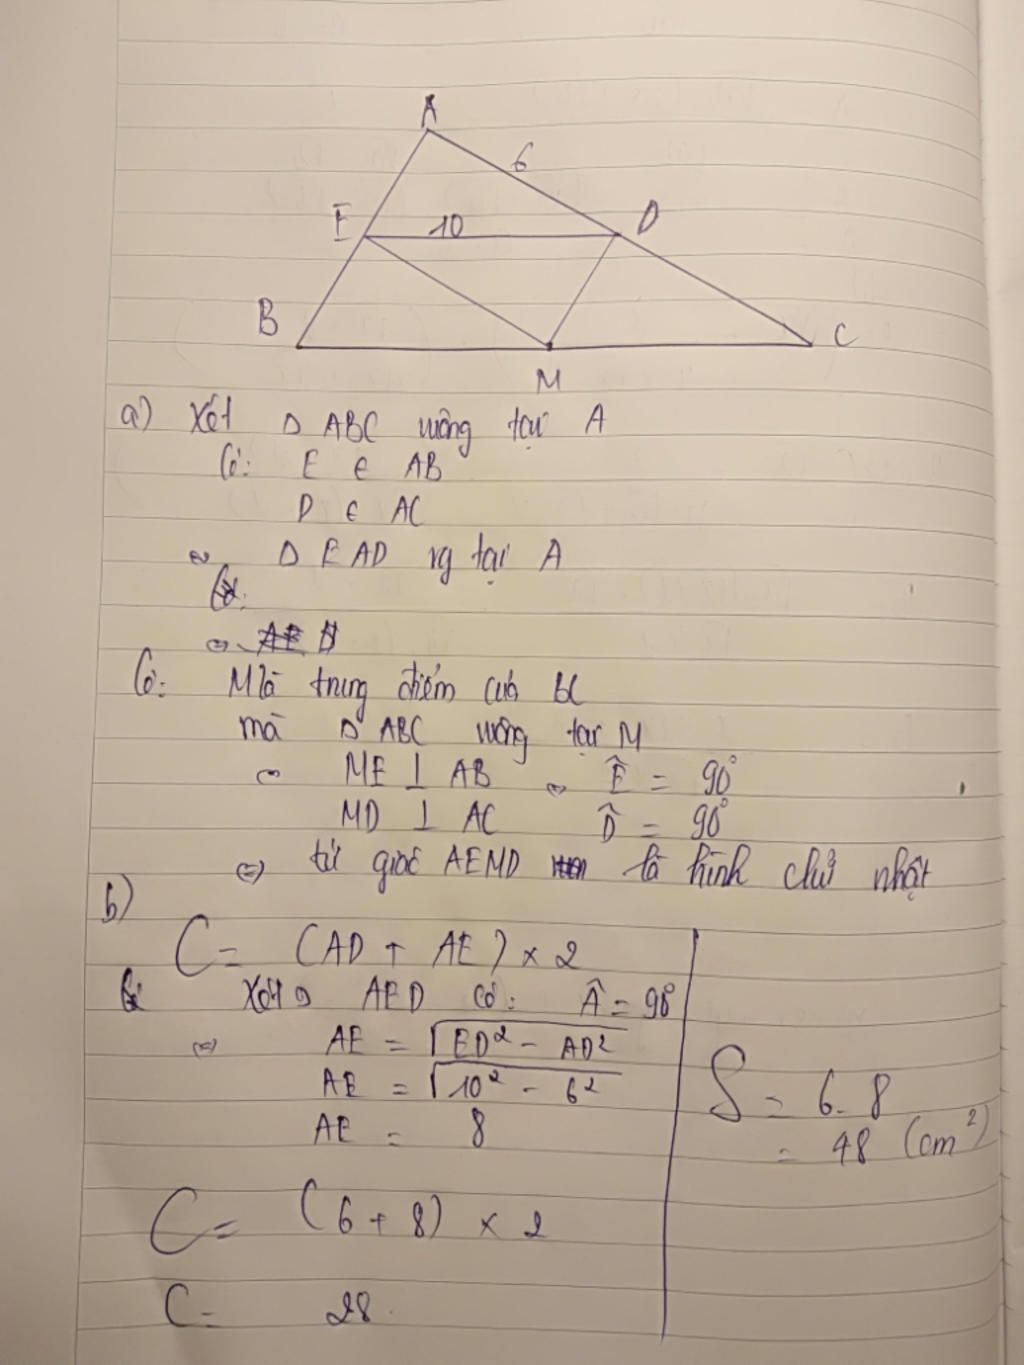 A
6
E
10
D
B
C
M
a) Xét Δ ABC vuông tại A
Có: E ∈ AB
D ∈ AC
Δ EAD vg tại A
Có: M là trung điểm của BC
mà Δ ABC vuông tại M
ME ⊥ AB Ê = 90°
MD ⊥ AC D̂ = 90°
⇔ tứ giác AEMD là hình chữ nhật
b)
C = (AD + AE) × 2
Xét Δ AED có: Â = 90°
⇔ AE = √ED² - AD²
AE = √10² - 6²
AE = 8
C = (6 + 8) × 2
C = 28
S = 6. 8
= 48 (cm²)